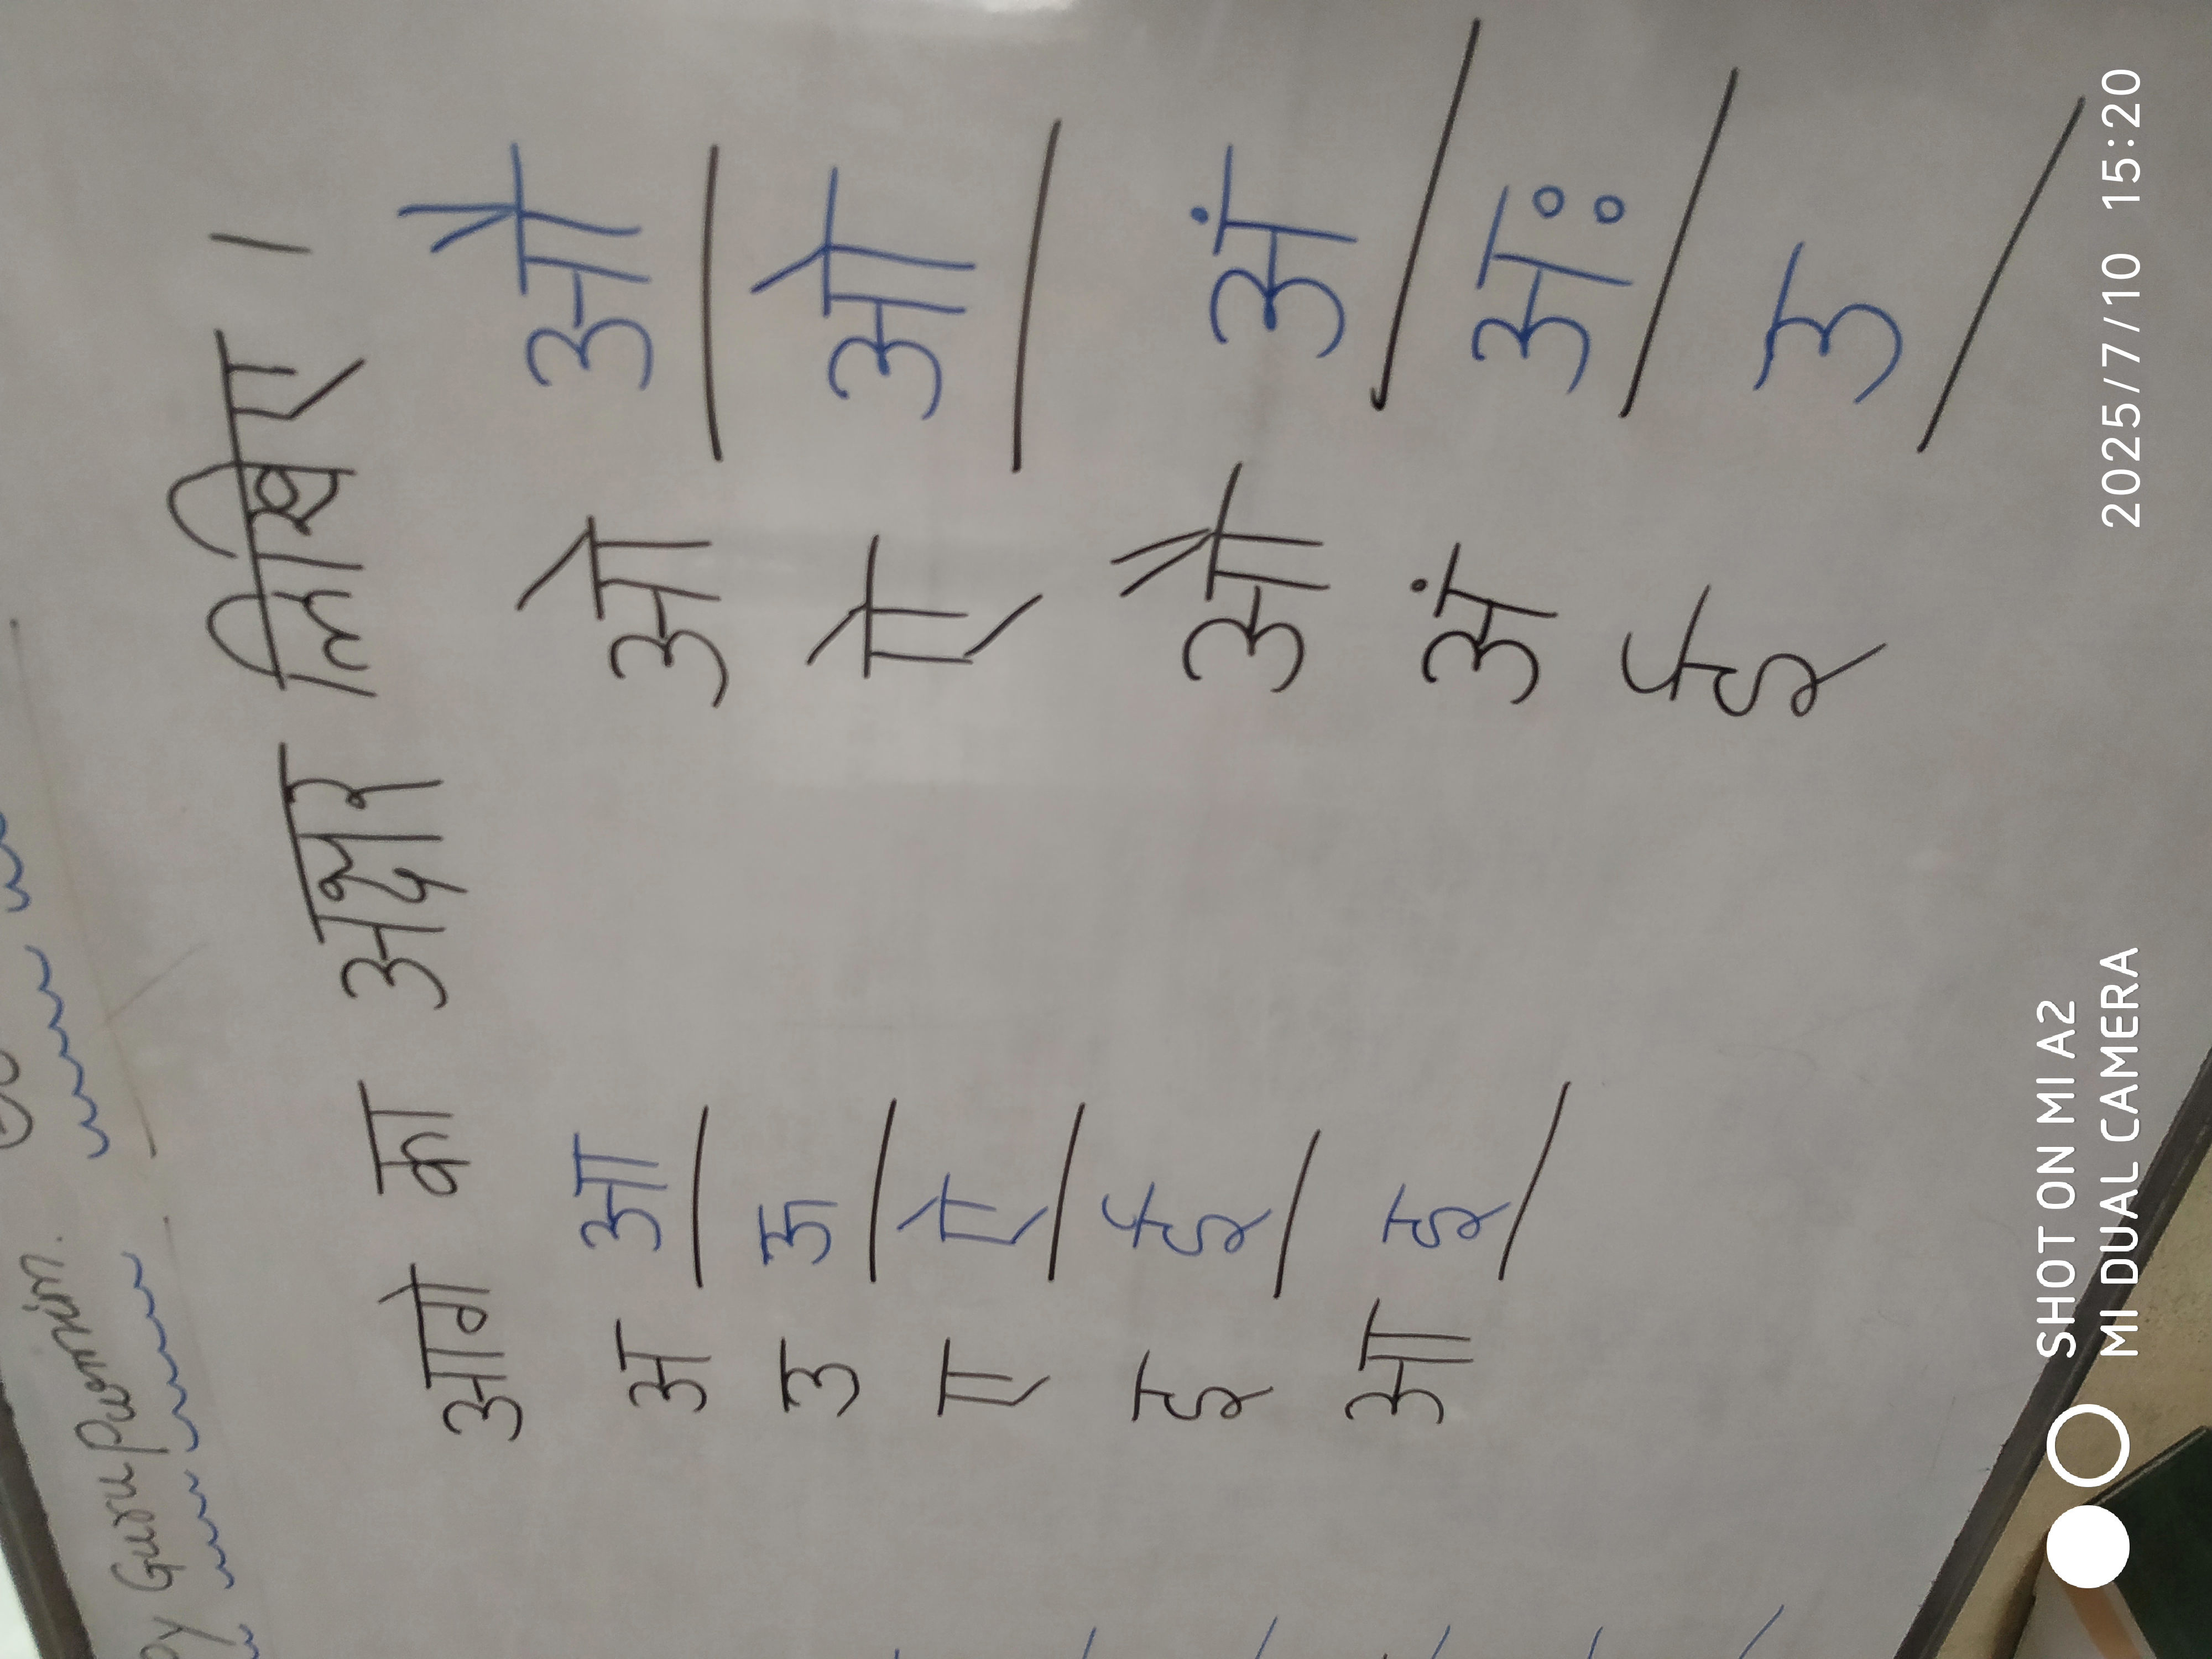 py Guru Parnim.
आगे का अक्षर लिखिए ।
अ आ ओ औ
उ ऊ ऐ ओ
ए ऐ औ अं
इ ई अं अः
आ इ ई उ
SHOT ON MI A2
MI DUAL CAMERA
2025/7/10 15:20